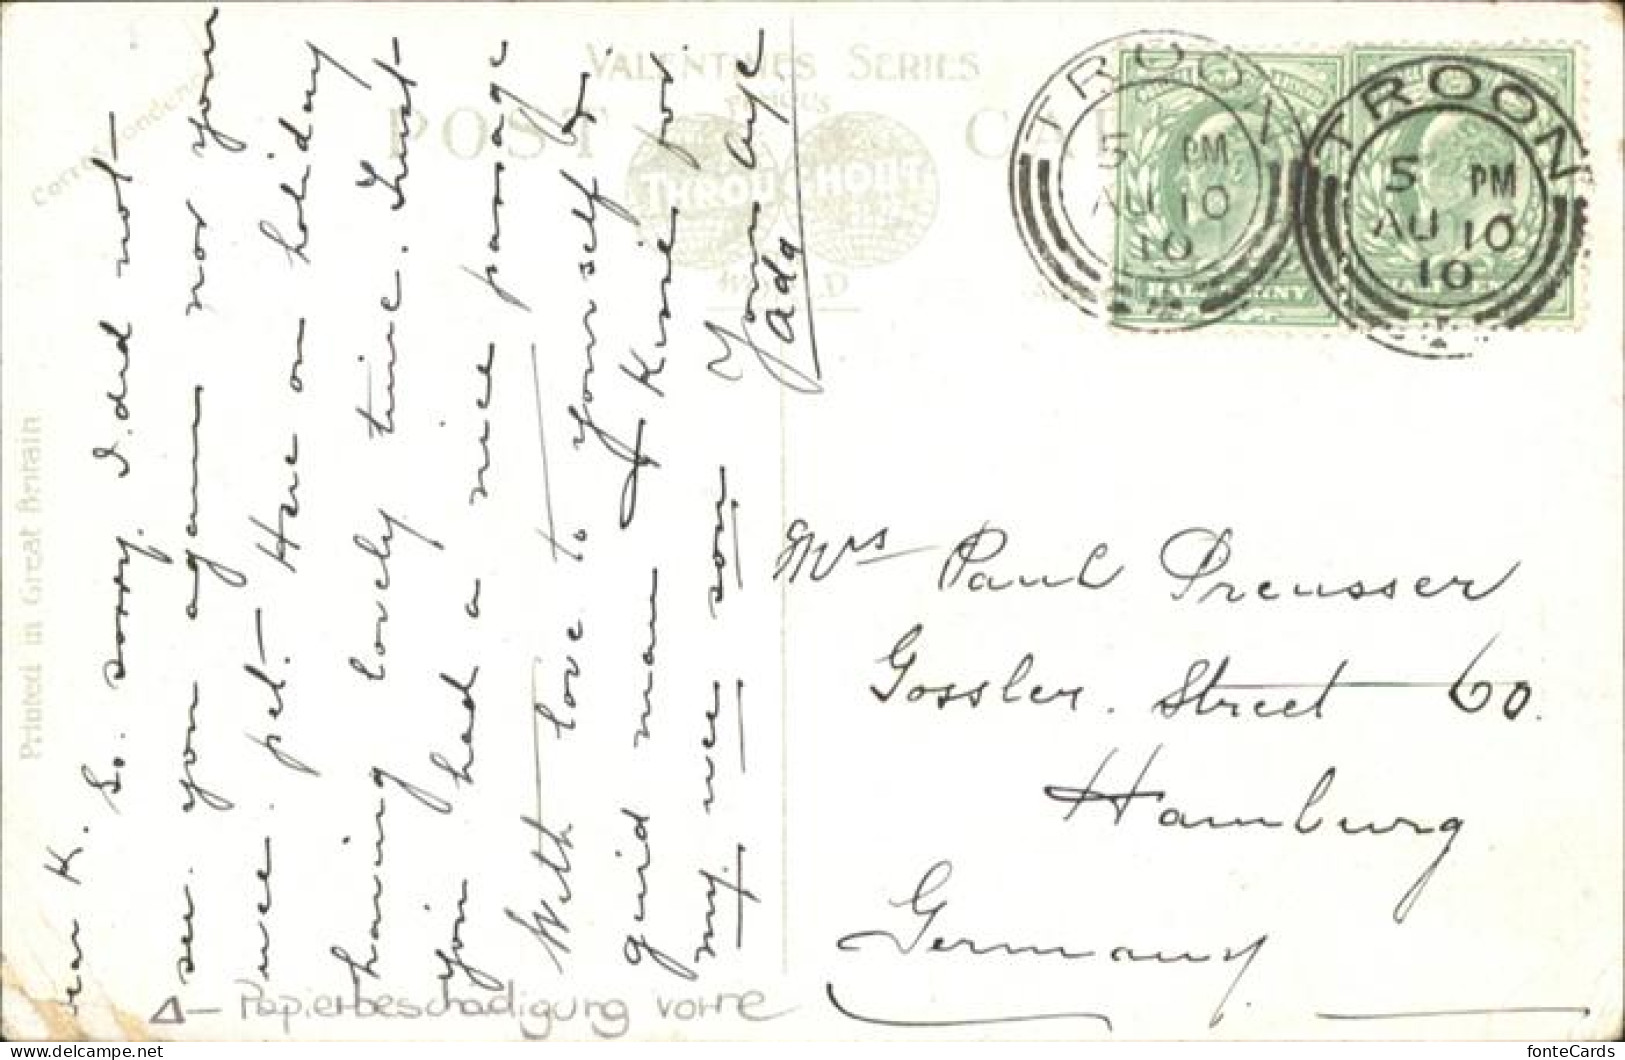 VALENTINES SERIES
FAMOUS
POST CARD
THROUGHOUT
WORLD
Correspondence
Printed in Great Britain
TROON
5 PM
AU 10
10
TROON
5 PM
AU 10
10
HALFPENNY
HALFPENNY
Dear K.
So. sorry. I. did not-
see. you again nor your
wee. pet- Here on holiday
having lovely time. Trust-
you had a nice passage
With love to yourself &
guid man & Kisie for
my. wee son
Yours aye
Ada
Mrs Paul Preusser
Gossler. Street 60.
Hamburg
Germany.
Δ- Papierbeschädigung vorne
delcampe.net
fonteCards